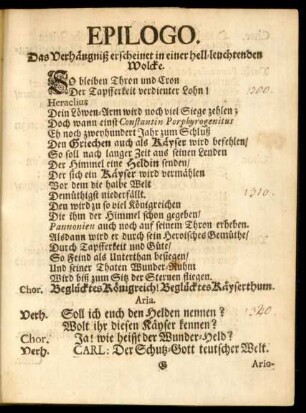 EPILOGO.
Das Verhängniß erscheinet in einer hell-leuchtenden
Wolcke.
SO bleiben Thron und Cron
Der Tapfferkeit verdienter Lohn!
1300.
Heraclius
Dein Löwen-Arm wird noch viel Siege zehlen;
Doch wann einst Constantin Porphyrogenitus
Eh noch zweyhundert Jahr zum Schluß
Den Griechen auch als Käyser wird befehlen/
So soll nach langer Zeit aus seinen Lenden
Der Himmel eine Heldin senden/
Der sich ein Käyser wird vermählen
Vor dem die halbe Welt
Demüthigst niederfällt.
1310.
Den wird zu so viel Königreichen
Die ihm der Himmel schon gegeben/
Pannonien auch noch auf seinem Thron erheben.
Alsdann wird er durch sein Heroisches Gemüthe/
Durch Tapfferkeit und Güte/
So Feind als Unterthan besiegen/
Und seiner Thaten Wunder-Ruhm
Wird biß zum Sitz der Sternen fliegen.
Chor. Beglücktes Königreich! Beglücktes Käyserthum.
Aria.
Verh. Soll ich euch den Helden nennen?
Wolt ihr diesen Käyser kennen?
Chor. Ja! wie heißt der Wunder-Held?
Verh. CARL: Der Schutz-Gott teutscher Welt.
G
Ario-